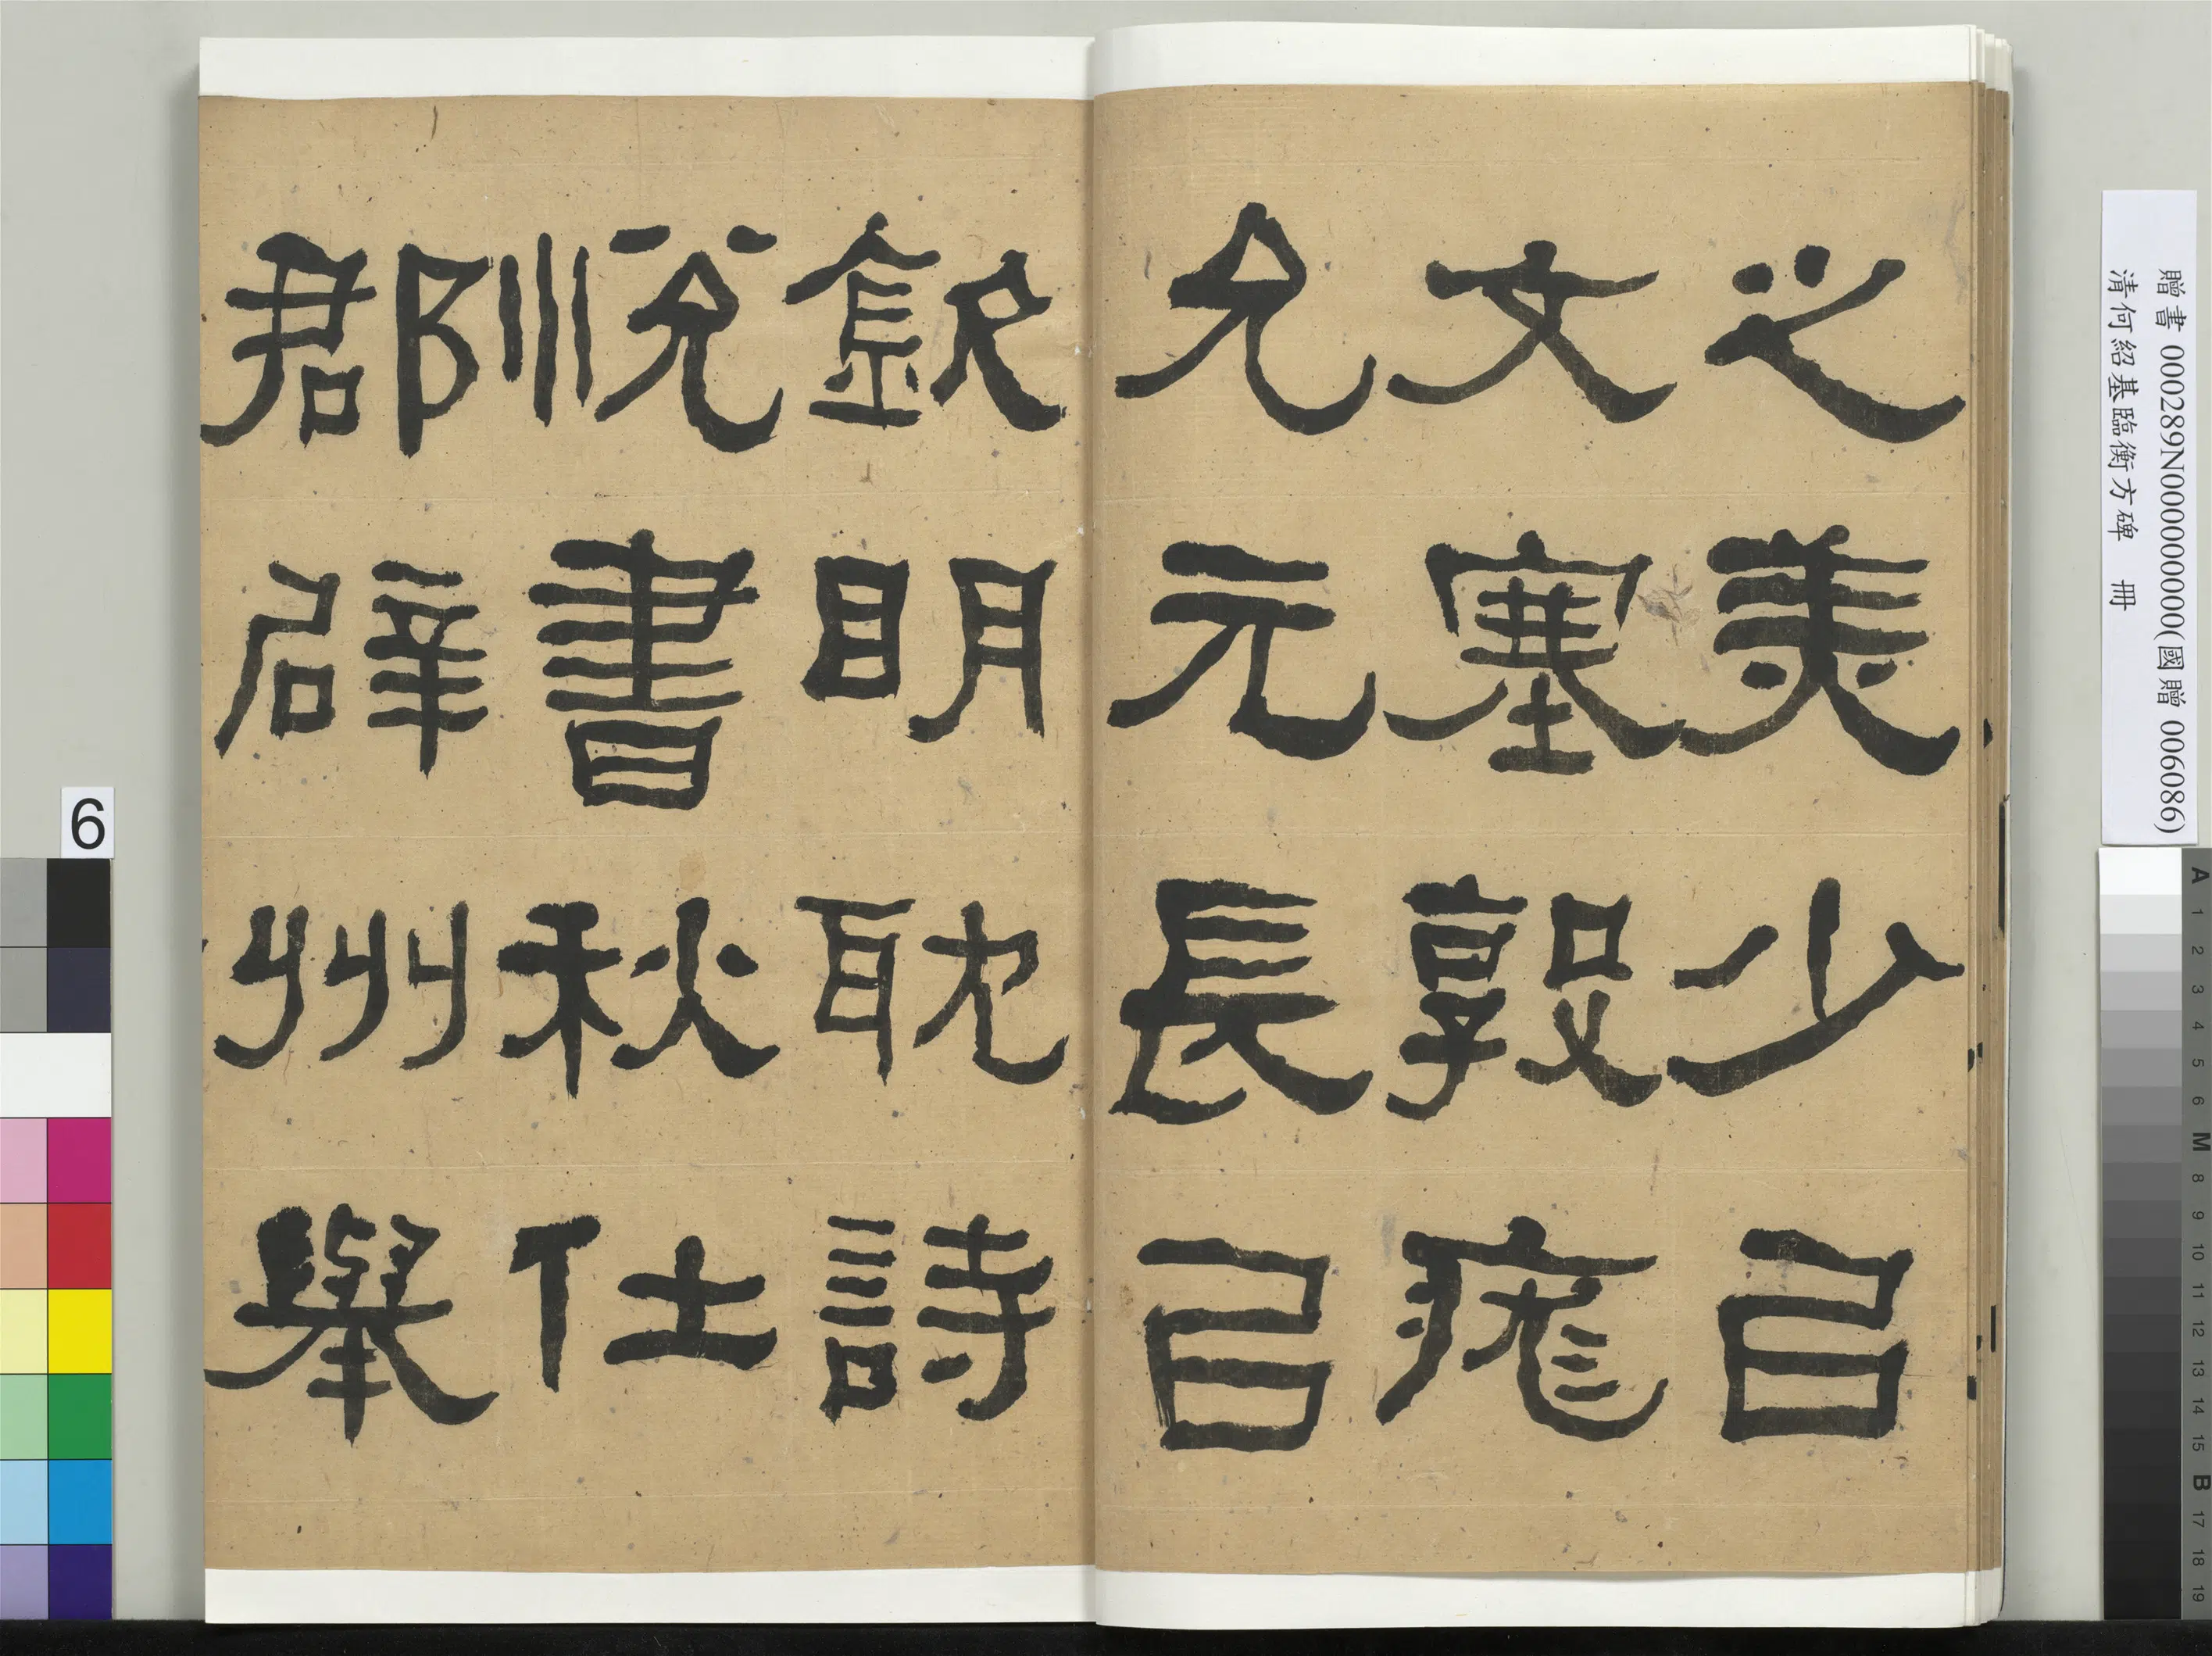 之美少㠯
文塞敦庬
允元長㠯
欽明耽詩
悅書秋仕
郡辟州舉
贈書 000289N000000000(國贈 006086)
清何紹基臨衡方碑 冊
6
A 1 2 3 4 5 6 M 8 9 10 11 12 13 14 15 B 17 18 19